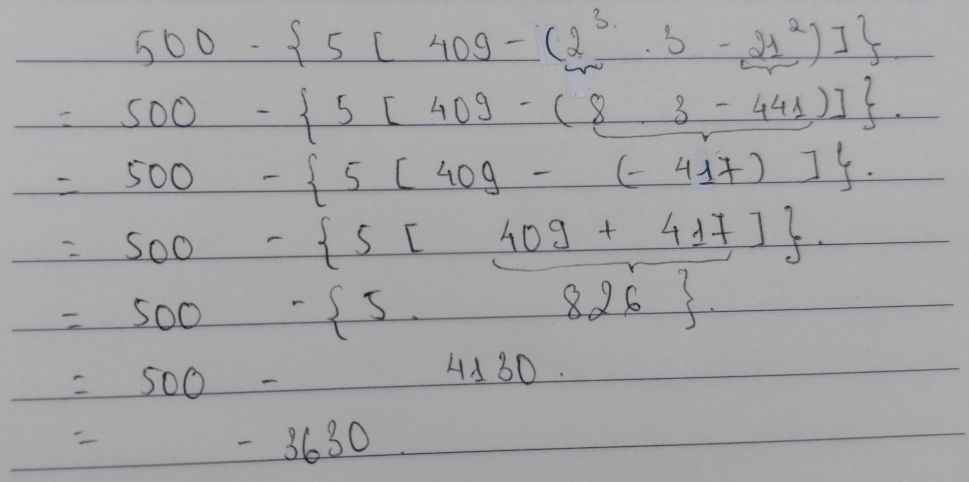 500 - { 5 [ 409 - (2³ . 3 - 21²) ] }.
= 500 - { 5 [ 409 - ( 8 . 3 - 441) ] }.
= 500 - { 5 [ 409 - (- 417) ] }.
= 500 - { 5 [ 409 + 417 ] }.
= 500 - { 5 . 826 }.
= 500 - 4130.
= - 3630.